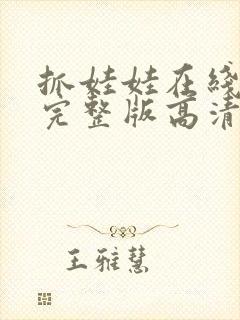 抓娃娃在线
完整版高清
王雅慧